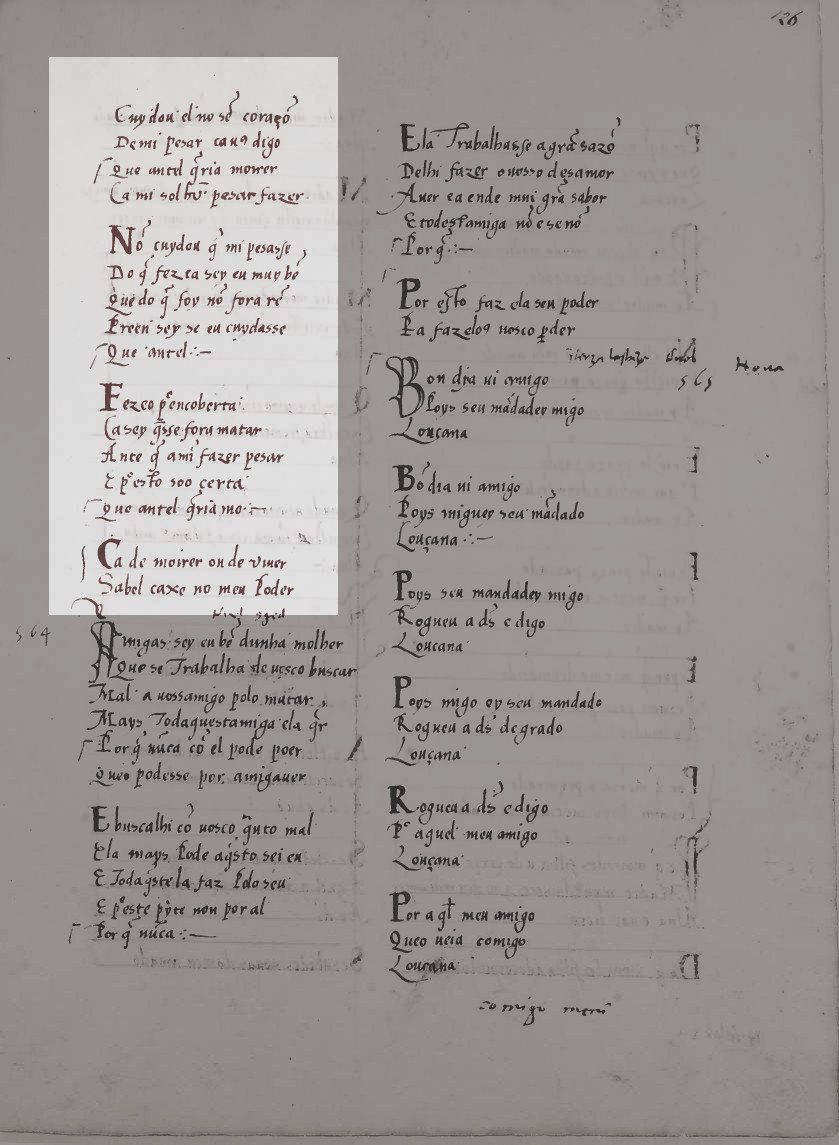 126
Cuydou el no se᷈ coraço᷈
De mi pesar caꝰ digo
Que antel q᷈ria moirer
Ca mi sol hu᷈ pesar fazer
No᷈ cuydou q᷈ mi pesasse
Do q᷈ fez ca sey eu muy be᷈
Que do q᷈ foy no᷈ fora re᷈
Preen sey se eu cuydasse
Que antel :—
Fezeo p encoberta
Ca sey q᷈sse fora matar
Ante q᷈ ami fazer pesar
E p esto soo certa
Que antel q᷈ria mo :—
Ca de moirer ou de viuer
Sabel caxe no meu poder
564
Amigas sey eu be᷈ dunha molher
Que se Trabalha de uosco buscar
Mal a uossamigo polo matar
Mays Todaquestamiga ela q᷈r
Por q᷈ nu᷈ca co᷈ el pode poer
Queo podesse por amigauer
E buscalhi co᷈ uosco q᷈nto mal
Ela mays pode aq᷈sto sei eu
E Todaq᷈stela faz pdo seu
E p este p᷈yte non por al
Por q᷈ nu᷈ca :—
Ela Trabalhasse a gra᷈ sazo᷈
Delhi fazer o uosso desamor
Auer ea ende mui gra᷈ sabor
E todestamiga no᷈ e se no᷈
Por q᷈ :—
Por esto faz ela seu poder
Pa fazeloꝰ uosco pder
565
Bon dia ui amigo
Poys seu ma᷈dadey migo
Louçana
Bo᷈ dia ui amigo
Poys miguey seu ma᷈dado
Louçana :—
Poys seu mandadey migo
Rogueu a ds᷈ e digo
Loucana
Poys migo ey seu mandado
Rogueu a ds᷈ de grado
Louçana
Rogueu a ds᷈ e digo
P aquel meu amigo
Louçana
Por aq᷈l meu amigo
Queo ueia comigo
Louçana
comigo